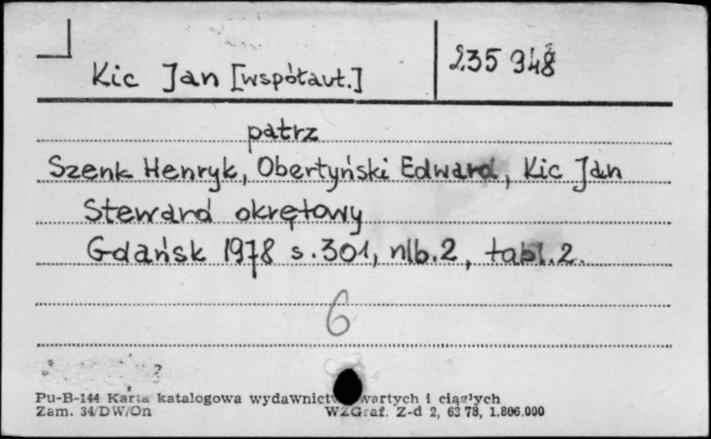 Kic Jan [współaut.]
235 948
patrz
Szenk Henryk, Obertyński Edward, Kic Jan
Steward okrętowy
Gdańsk 1978 s.301, nlb.2, tabl.2.
6
Pu-B-144 Karta katalogowa wydawnictw zwartych i ciągłych
Zam. 34/DW/On WZGraf. Z-d 2, 63 78, 1.806.000